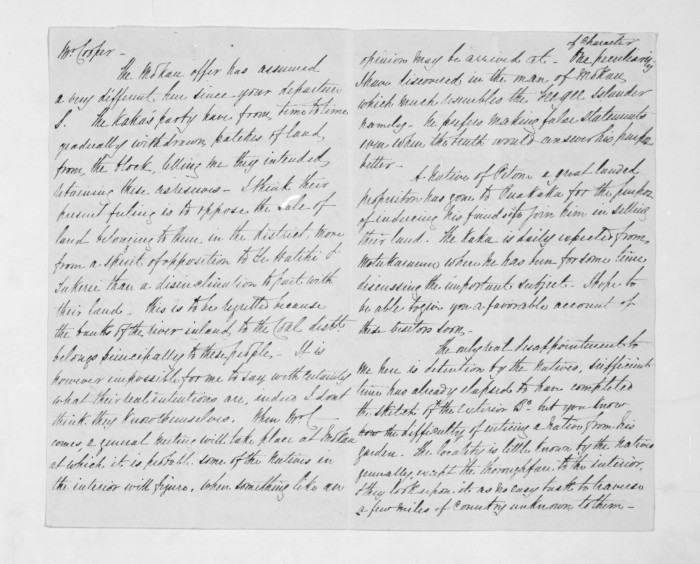 Mr Cooper -
The Mokau offer has assumed
a very different hue since your departure
&. The Kaka's party have from time to time
gradually withdrawn patches of land
from the block, telling me they intended
retaining these as reserves - I think their
present feeling is to oppose the sale of
land belonging to them in the district, more
from a spirit of opposition to Te &
Takerei than a disinclination to part with
their land - this is to be regretted because
the banks of the river inland, to the Coal distt.
belongs principally to these people. - It is
however impossible for me to say with certainty
what their real intentions are, indeed I dont
think they know themselves. When Mr C -
comes, a general meeting will take place at Mokau
at which it is probable some of the Natives in
the interior will figure, when something like an
of character
opinion may be arrived at. One peculiarity
I have discovered in the man of Mokau
which much resembles the Feegee Islander
namely - He prefers making false statements
even when the truth would answer his purpose
better.
A Native of a great landed
proprietor has gone to Puakaka for the purpose
of inducing his friends to join him in selling
their land. The Kaka is daily expected from
where he has been for some time
discussing the important subject. I hope to
be able to give you a favorable account of
these visitors soon.
The only real disappointment to
me here is detention by the Natives, sufficient
time has already elapsed to have completed
the sketch of the exterior By but you know
how the difficulty of enticing a native from his
garden. The locality is little known by the natives
generally, except the thoroughfare to the interior,
& they look upon it as no easy task to traverse
a few miles of Country unknown to them -